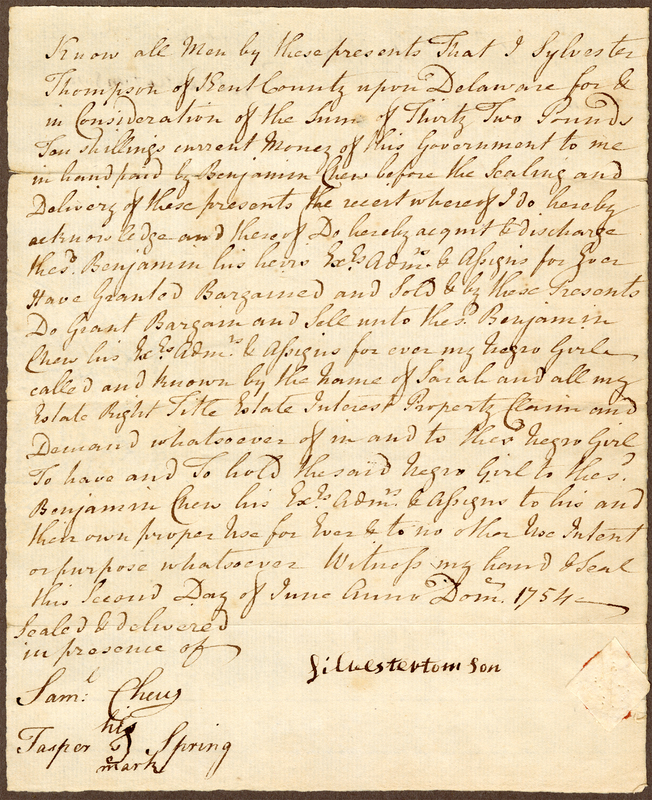 Know all Men by these presents That I Sylvester
Thompson of Kent County upon Delaware for &
in Consideration of the Sum of Thirty Two Pounds
Ten shillings current Money of this Government to me
in hand paid by Benjamin Chew before the Sealing and
Delivery of these presents the receit whereof I do hereby
acknowledge and thereof Do hereby acquit & discharge
the sd. Benjamin his heirs Exrs Admrs. & Assigns for Ever
Have Granted Bargained and Sold & by these Presents
Do Grant Bargain and Sell unto the sd. Benjamin
Chew his Exrs Admrs & Assigns for ever my Negro Girl
called and known by the Name of Sarah and all my
Estate Right Title Estate Interest Property Claim and
Demand whatsoever of in and to the sd Negro Girl
To have and To hold the said Negro Girl to the sd.
Benjamin Chew his Exrs Admrs. & Assigns to his and
their own proper Use for Ever & to no other Use Intent
or purpose whatsoever Witness my hand & Seal
this Second Day of June Anno Dom. 1754
Sealed & delivered
in presence of
Silvestertomson
Saml Chew
his
Jasper Spring
mark